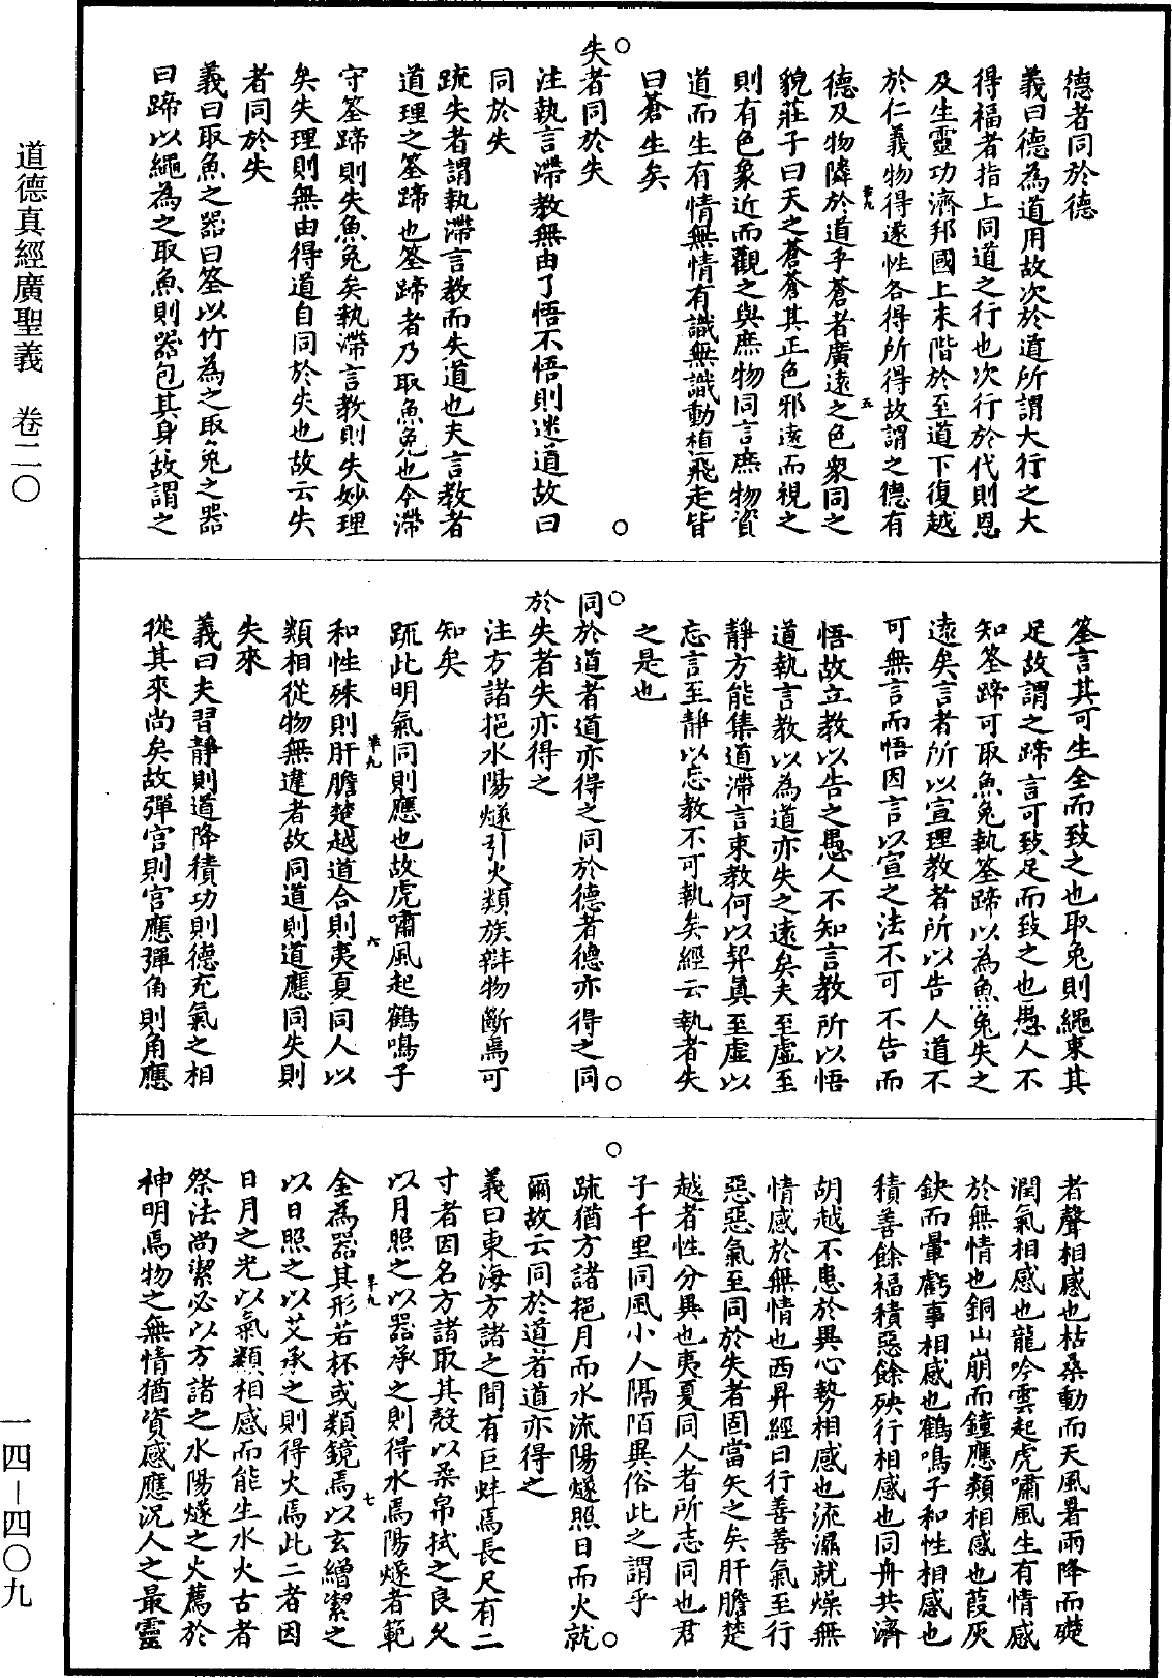 道德真經廣聖義　卷二〇
一四—四〇九
德者同於德
義曰德為道用故次於道所謂大行之大
得福者指上同道之行也次行於代則恩
及生靈功濟邦國上未階於至道下復越
於仁義物得遂性各得所得故謂之德有
德及物隣於道乎蒼者廣遠之色衆同之
貌莊子曰天之蒼蒼其正色邪遠而視之
則有色象近而觀之與庶物同言庶物資
道而生有情無情有識無識動植飛走皆
曰蒼生矣
失者同於失
注執言滯教無由了悟不悟則迷道故曰
同於失
疏失者謂執滯言教而失道也夫言教者
道理之筌蹄也筌蹄者乃取魚兔也今滯
守筌蹄則失魚兔矣執滯言教則失妙理
矣失理則無由得道自同於失也故云失
者同於失
義曰取魚之器曰筌以竹為之取兔之器
曰蹄以繩為之取魚則器包其身故謂之
筌言其可生全而致之也取兔則繩束其
足故謂之蹄言可致足而致之也愚人不
知筌蹄可取魚兔執筌蹄以為魚兔失之
遠矣言者所以宣理教者所以告人道不
可無言而悟因言以宣之法不可不告而
悟故立教以告之愚人不知言教所以悟
道執言教以為道亦失之遠矣夫至虛至
靜方能集道滯言束教何以契真至虛以
忘言至靜以忘教不可執矣經云執者失
之是也
同於道者道亦得之同於德者德亦得之同
於失者失亦得之
注方諸挹水陽燧引火類族辯物斷焉可
知矣
疏此明氣同則應也故虎嘯風起鶴鳴子
和性殊則肝膽楚越道合則夷夏同人以
類相從物無違者故同道則道應同失則
失來
義曰夫習靜則道降積功則德充氣之相
從其來尚矣故彈宮則宮應彈角則角應
者聲相感也枯桑動而天風暑雨降而礎
潤氣相感也龍吟雲起虎嘯風生有情感
於無情也銅山崩而鐘應類相感也葭灰
缺而暈虧事相感也鶴鳴子和性相感也
積善餘福積惡餘殃行相感也同舟共濟
胡越不患於異心勢相感也流濕就燥無
情感於無情也西昇經曰行善善氣至行
惡惡氣至同於失者固當矢之矣肝膽楚
越者性分異也夷夏同人者所志同也君
子千里同風小人隔陌異俗此之謂乎
疏猶方諸挹月而水流陽燧照日而火就
爾故云同於道者道亦得之
義曰東海方諸之間有巨蚌焉長尺有二
寸者因名方諸取其殼以柔帛拭之良久
以月照之以器承之則得水焉陽燧者範
金為器其形若杯或類鏡焉以玄繒潔之
以日照之以艾承之則得火焉此二者因
日月之光以氣類相感而能生水火古者
祭法尚潔必以方諸之水陽燧之火薦於
神明焉物之無情猶資感應況人之最靈